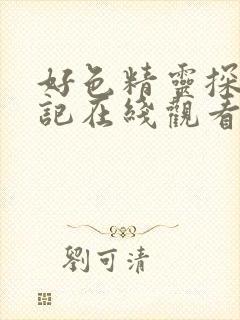 好色精靈探
記在綫觀看
劉可清